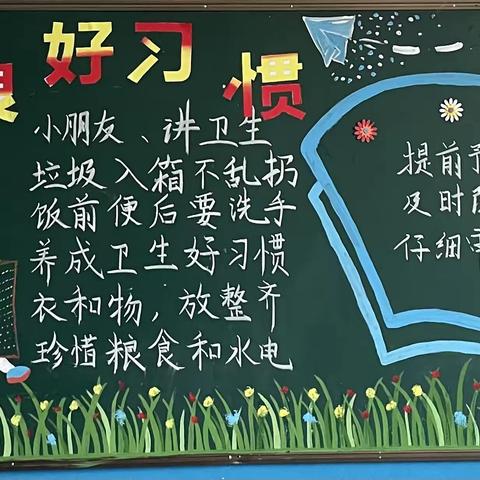 好习惯
小朋友、讲卫生
垃圾入箱不乱扔
饭前便后要洗手
养成卫生好习惯
衣和物，放整齐
珍惜粮食和水电
提前
及时
仔细